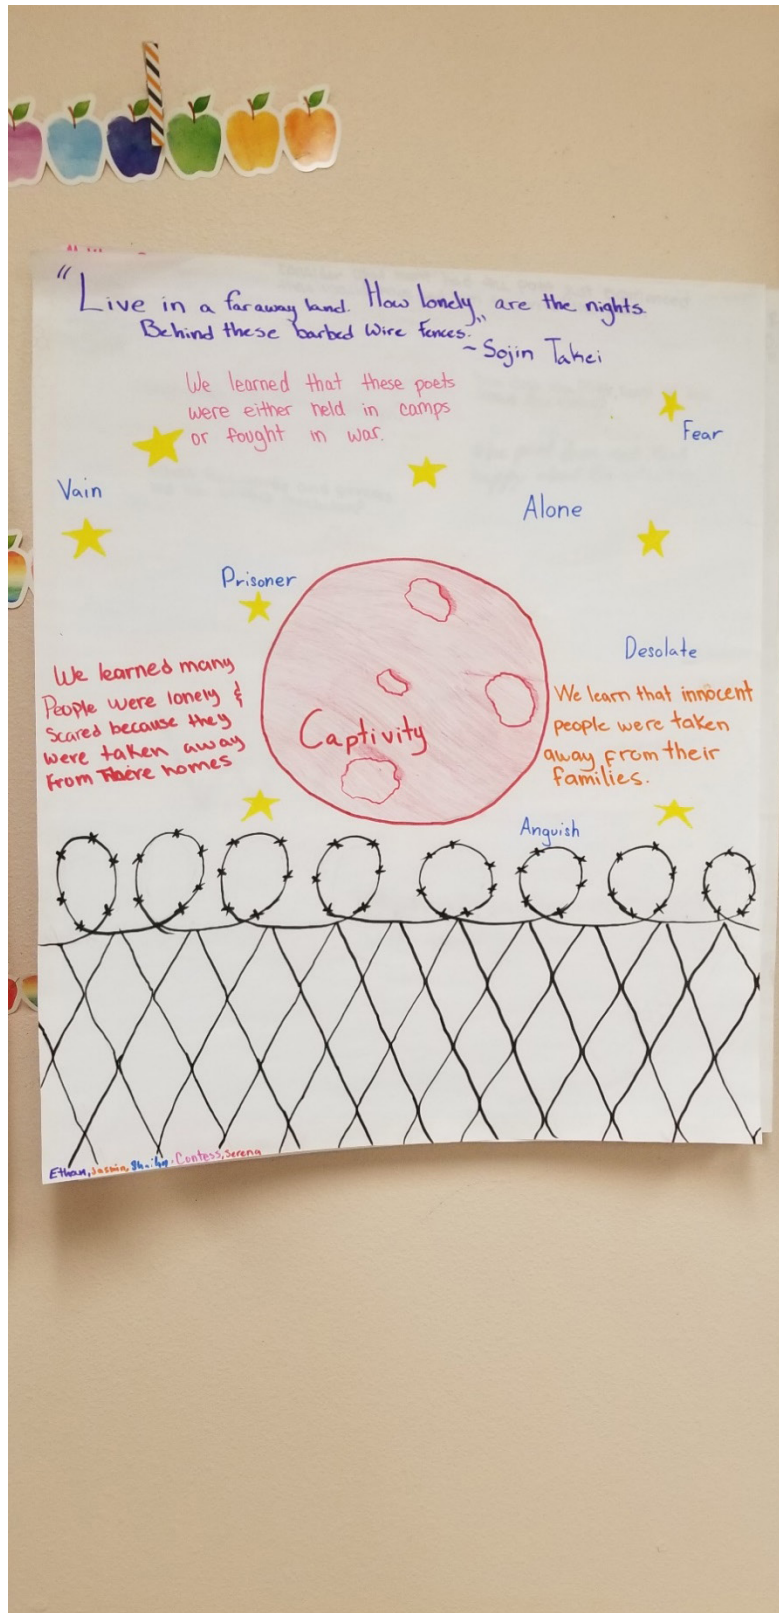 "Live in a faraway land. How lonely are the nights
Behind these barbed wire fences."
~ Sojin Takei
We learned that these poets
were either held in camps
or fought in war.
Fear
Vain
Alone
Prisoner
Desolate
We learned many
People were lonely &
Scared because they
were taken away
from there homes
Captivity
We learn that innocent
people were taken
away from their
families.
Anguish
Ethan, Jasmin, Contess, Serena